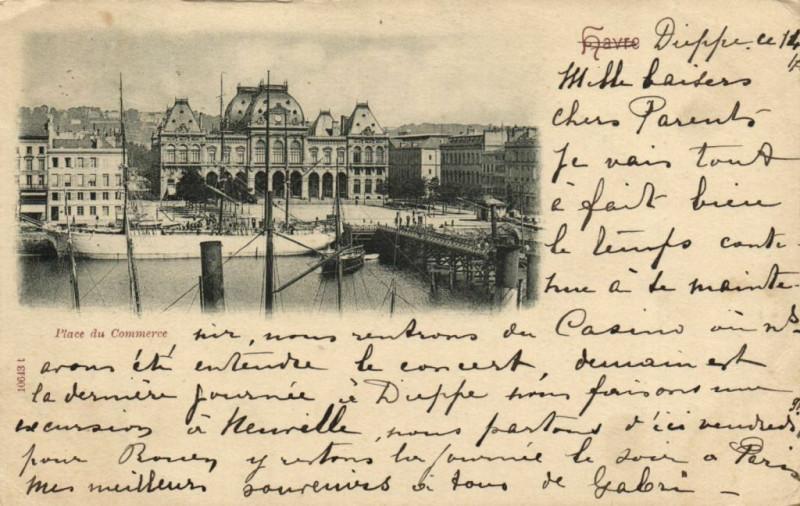 Havre Dieppe, ce 14
Mille baisers
chers Parents
Je vais tout
à fait bien
le temps conti-
nue à se mainte-
Place du Commerce
nir, nous rentrons du Casino où ns
avons été entendre le concert, demain est
la dernière journée à Dieppe nous faisons une
excursion à Neuville, nous partons d'ici vendredi
pour Rouen y restons la journée le soir a Paris
Mes meilleurs souvenirs à tous de Gabri -
10643 t